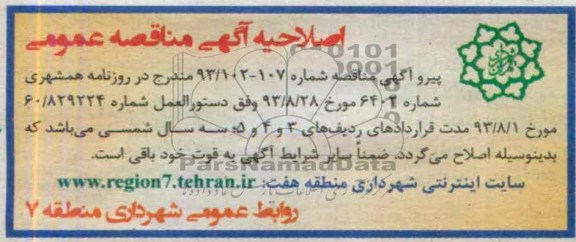 اصلاحیه آگهی مناقصه عمومی
پیرو آگهی مناقصه شماره ۱۰۷-۹۳/۱۰۲ مندرج در روزنامه همشهری
شماره ۶۴۰۲ مورخ ۹۳/۸/۲۸ وفق دستورالعمل شماره ۶۰/۸۲۹۲۲۴
مورخ ۹۳/۸/۱ مدت قراردادهای ردیف‌های ۳ و ۴ و ۵؛ سه سال شمسی می‌باشد که
بدینوسیله اصلاح می‌گردد. ضمناً سایر شرایط آگهی به قوت خود باقی است.
ParsNamadData
سایت اینترنتی شهرداری منطقه هفت: www.region7.tehran.ir
روابط عمومی شهرداری منطقه ۷